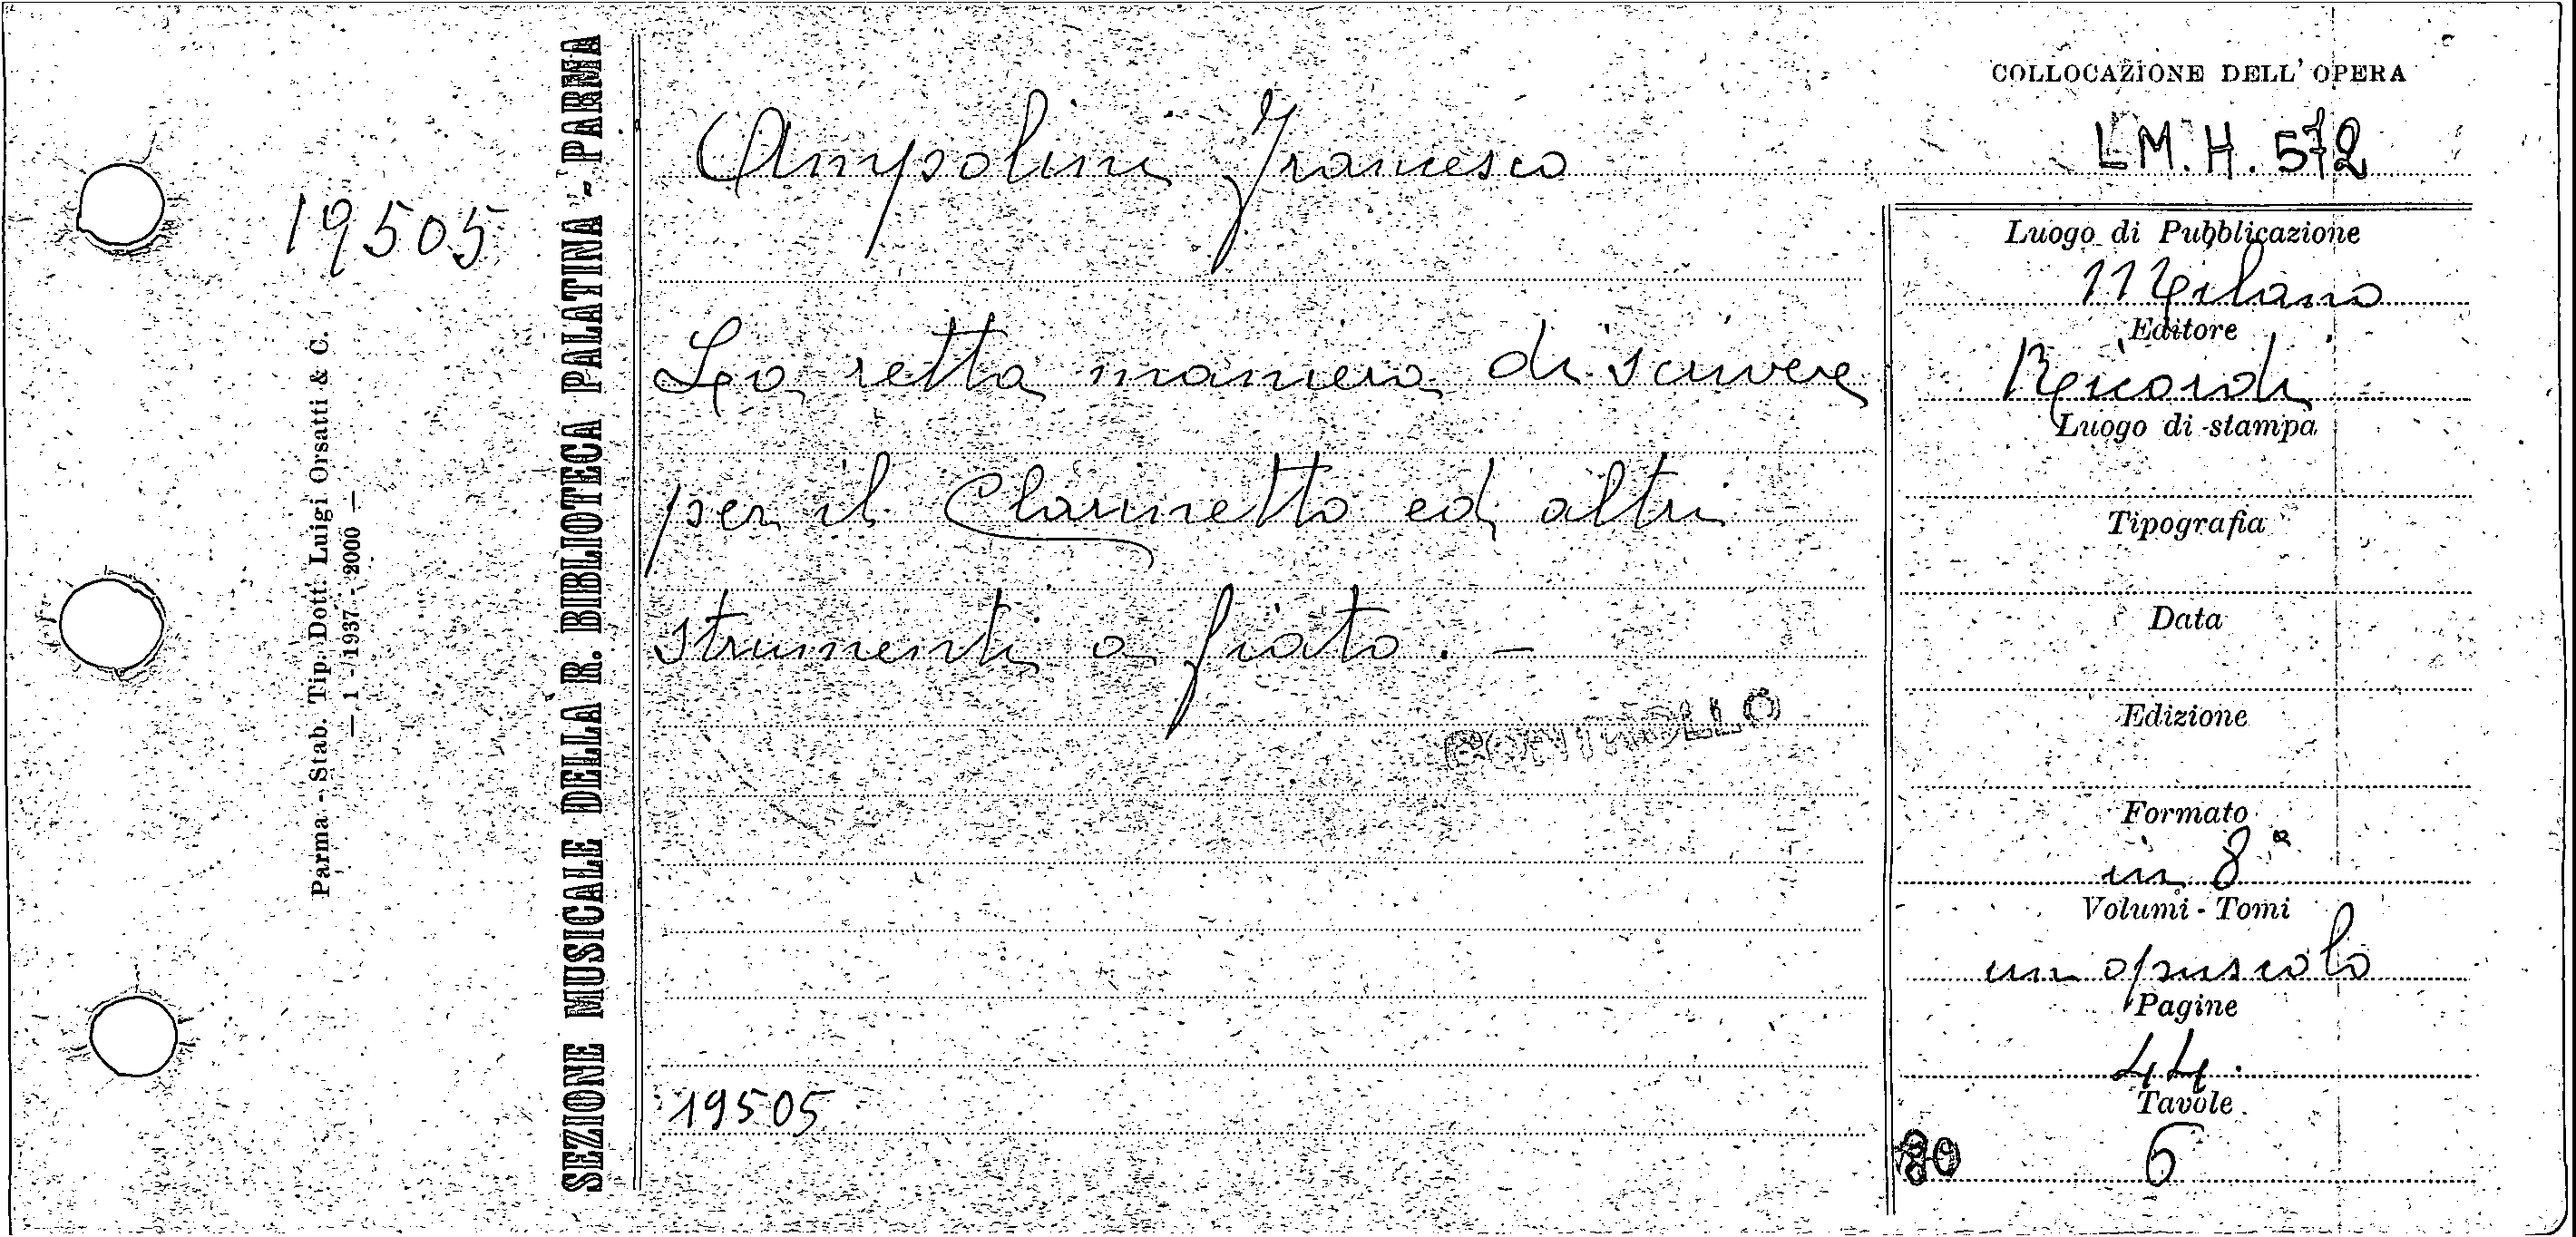 COLLOCAZIONE DELL' OPERA
L M. H. 572
19505
Parma - Stab. Tip. Dott. Luigi Orsatti & C.
— 1 - 1937 - 2000 —
SEZIONE MUSICALE DELLA R. BIBLIOTECA PALATINA - PARMA
Ampolini Francesco
La retta maniera di scrivere
per il Clarinetto ed altri
strumenti a fiato. —
CONTROLLO
19505
Luogo di Pubblicazione
Milano
Editore
Ricordi
Luogo di stampa
Tipografia
Data
Edizione
Formato
in 8°
Volumi - Tomi
un opuscolo
Pagine
44.
Tavole
6